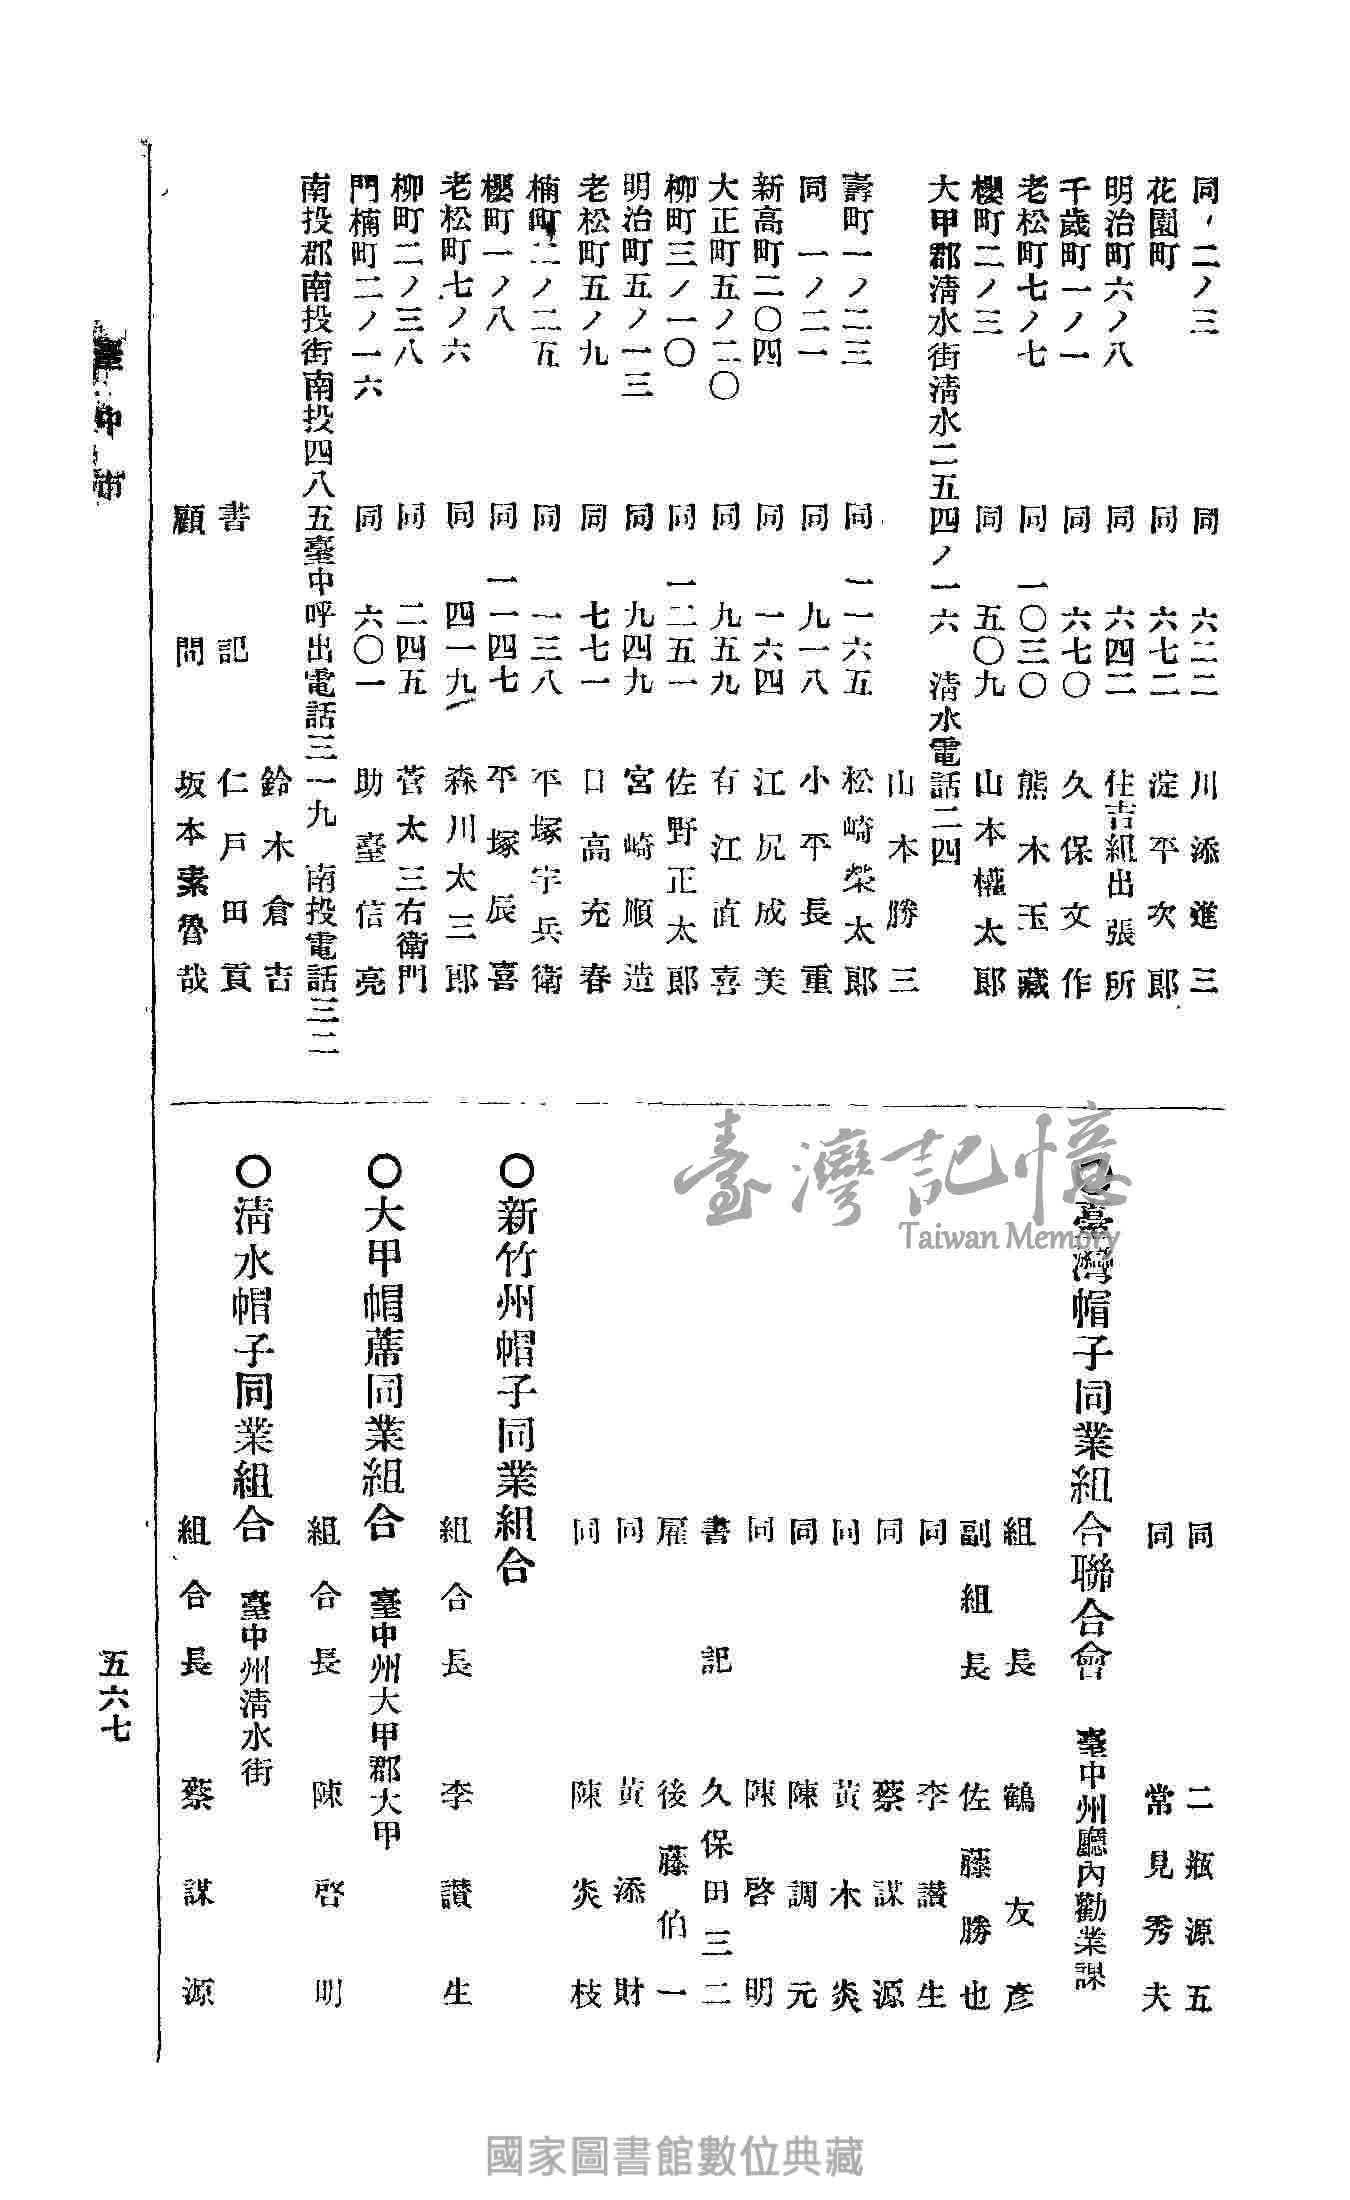 同、二ノ三 同 六二二 川添進三
花園町 同 六七二 淀平次郎
明治町六ノ八 同 六四二 住吉組出張所
千歲町一ノ一 同 六七〇 久保文作
老松町七ノ七 同 一〇三〇 熊木玉藏
櫻町二ノ三 同 五〇九 山本權太郎
大甲郡淸水街淸水二五四ノ一六 淸水電話二四
山本勝三
壽町一ノ二三 同 一一六五 松崎榮太郎
同 一ノ二一 同 九一八 小平長重
新高町二〇四 同 一六四 江尻成美
大正町五ノ二〇 同 九五九 有江直喜
柳町三ノ一〇 同 一二五一 佐野正太郎
明治町五ノ一三 同 九四九 宮崎順造
老松町五ノ九 同 七七一 口高充春
楠町二ノ二五 同 一三八 平塚宇兵衛
櫻町一ノ八 同 一一四七 平塚辰喜
老松町七ノ六 同 四一九 森川太三郎
柳町二ノ三八 同 二四五 菅太三右衛門
門楠町二ノ一六 同 六〇一 助臺信亮
南投郡南投街南投四八五臺中呼出電話三一九 南投電話三二
鈴木倉吉
書記 仁戶田貢
顧問 坂本素魯哉
同 二瓶源五
同 常見秀夫
〇臺灣帽子同業組合聯合會 臺中州廳內勸業課
組長 鶴友彥
副組長 佐藤勝也
同 李讃生
同 蔡謀源
同 黃木炎
同 陳調元
同 陳啓明
書記 久保田三二
雇 後藤伯一
同 黃添財
同 陳炎枝
〇新竹州帽子同業組合
組合長 李讃生
〇大甲帽蓆同業組合 臺中州大甲郡大甲
組合長 陳啓明
〇淸水帽子同業組合 臺中州淸水街
組合長 蔡謀源
臺中市
五六七
臺灣記憶
Taiwan Memory
國家圖書館數位典藏